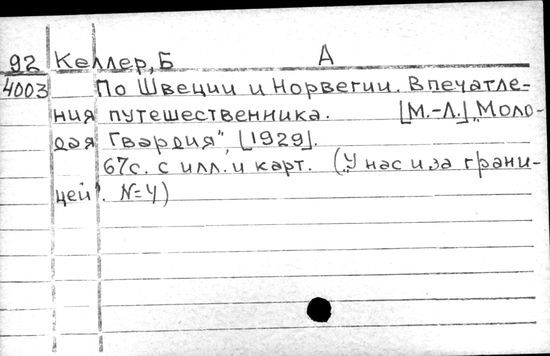 92 Келлер, Б А
4003 По Швеции и Норвегии. Впечатле=
ния путешественника. [М.-Л.] „Моло-
дая Гвардия", [1929].
67с. с илл. и карт. („У нас и за грани-
цей". №=4)